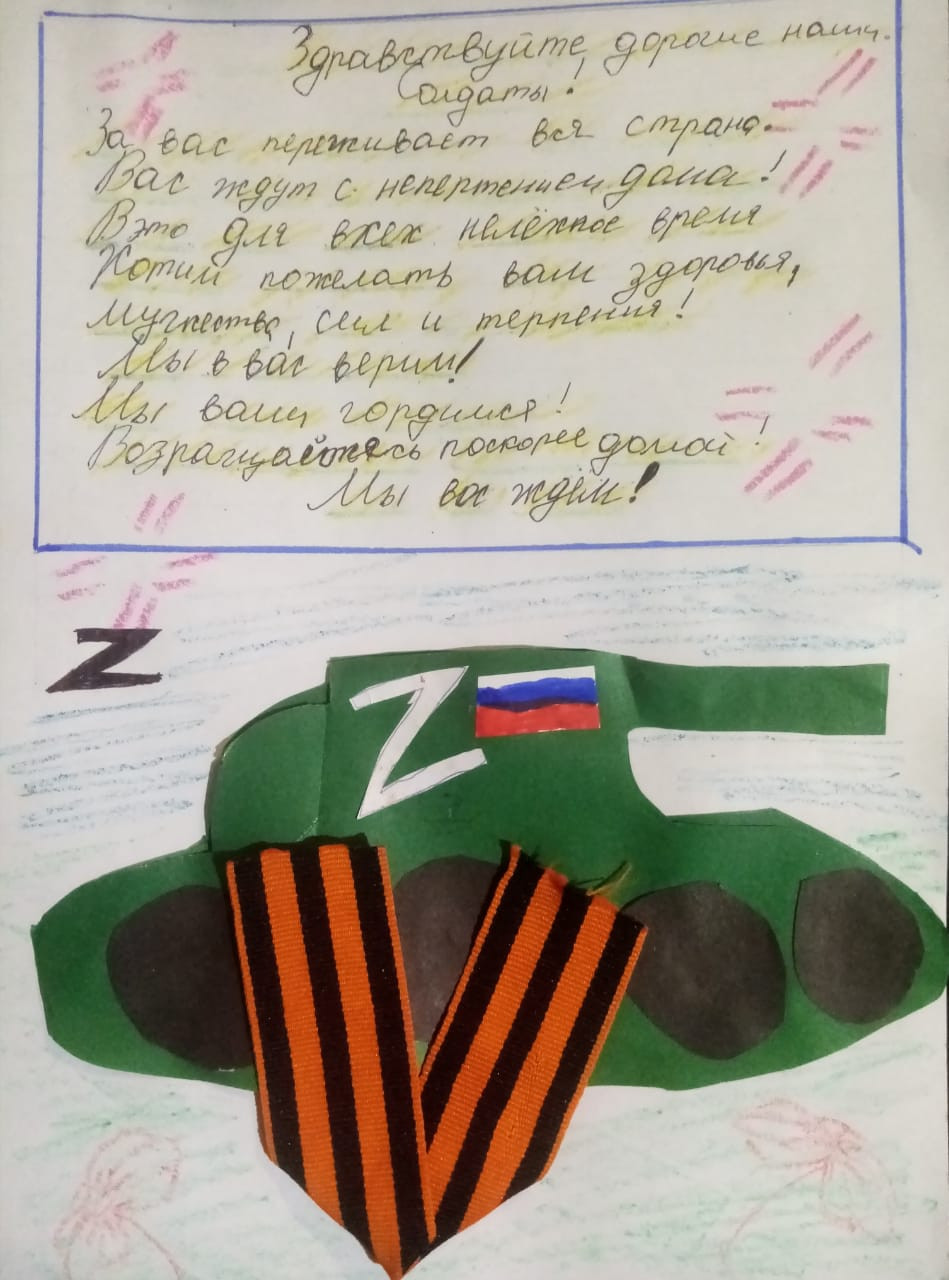 Здравствуйте, дорогие наши
Солдаты!
За вас переживает вся страна.
Вас ждут с неперпением дома!
В это для вхех нелёхкое время
Хотим пожелать вам здоровья,
мужчества, сил и терпения!
Мы в вас верим!
Мы вами гордимся!
Возращайтесь поскорее домой!
Мы вас ждём!
Z
Z